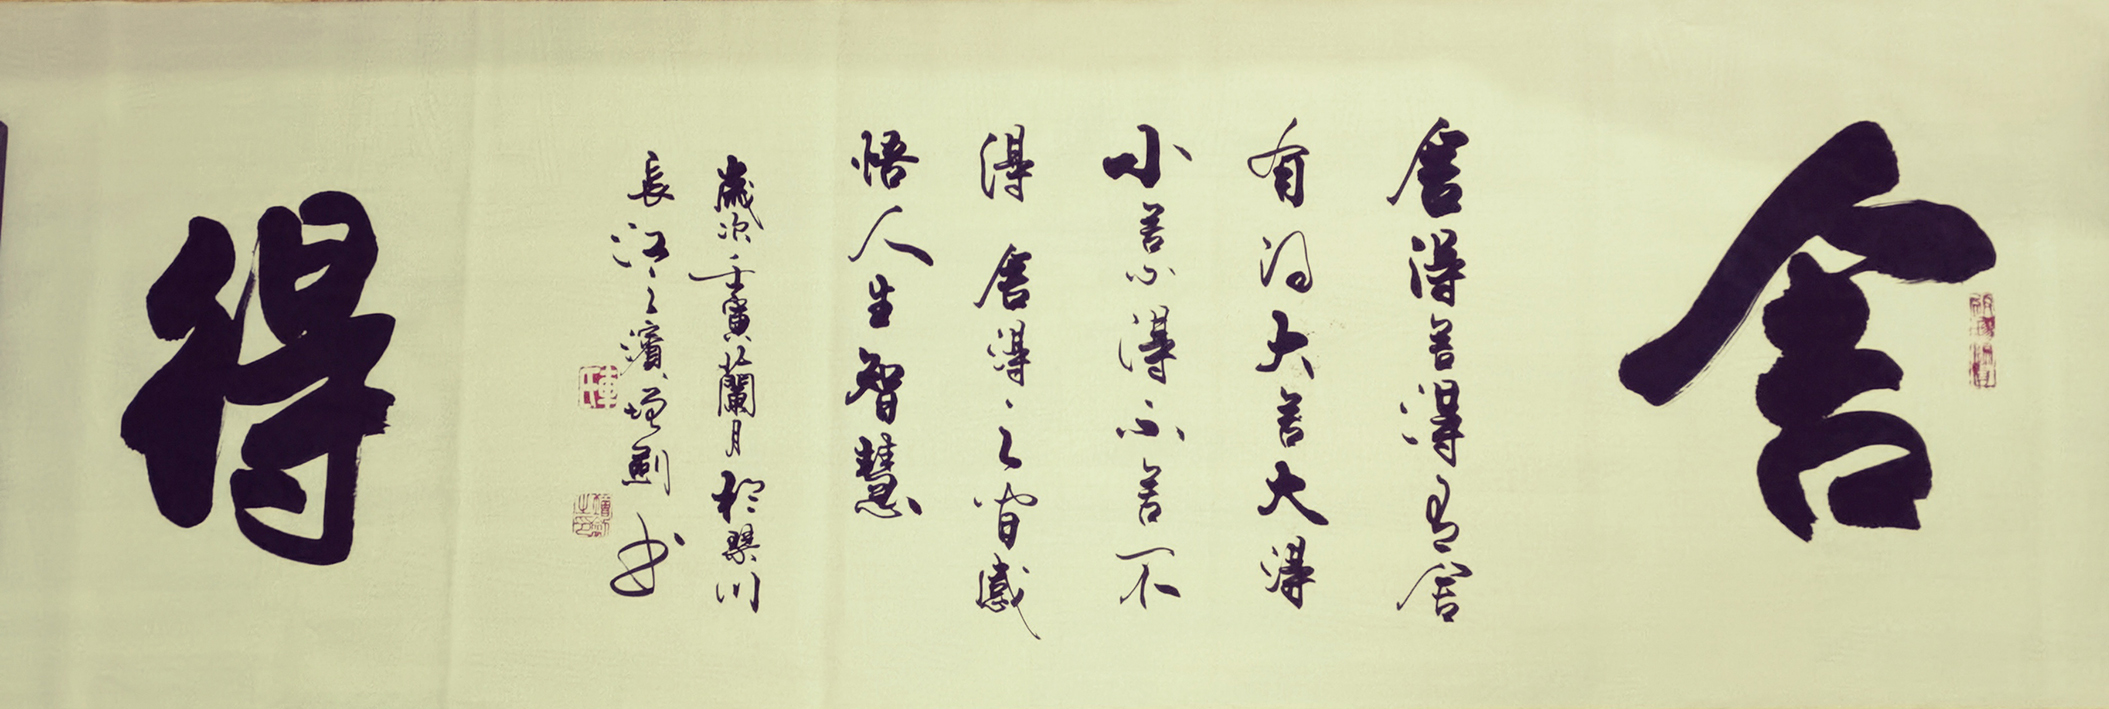 舍
舍得舍得有舍
有得大舍大得
小舍小得不舍不
得舍得之间感
悟人生智慧
歲次壬寅蘭月於琴川
長江之濱增劍书
得